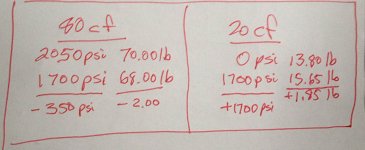 80 cf
2050 psi 70.00 lb
1700 psi 68.00 lb
-350 psi -2.00
20 cf
0 psi 13.80 lb
1700 psi 15.65 lb
+1700 psi +1.85 lb